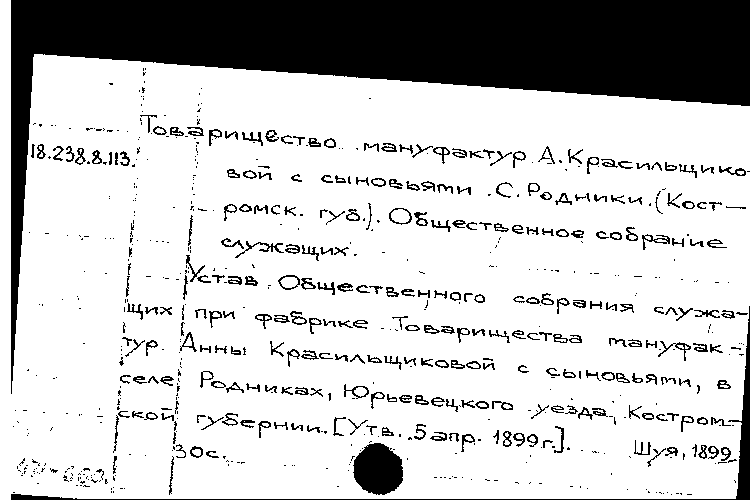 Товарищество мануфактур А. Красильщико-
18.238.8.113.
вой с сыновьями С. Родники. (Кост-
ромск. губ.). Общественное собрание
служащих.
Устав Общественного собрания служа-
щих при фабрике Товарищества мануфак-
тур Анны Красильщиковой с сыновьями, в
селе Родниках, Юрьевецкого уезда, Костром-
ской губернии. [Утв. 5 апр. 1899 г.]. Шуя, 1899
30 с.